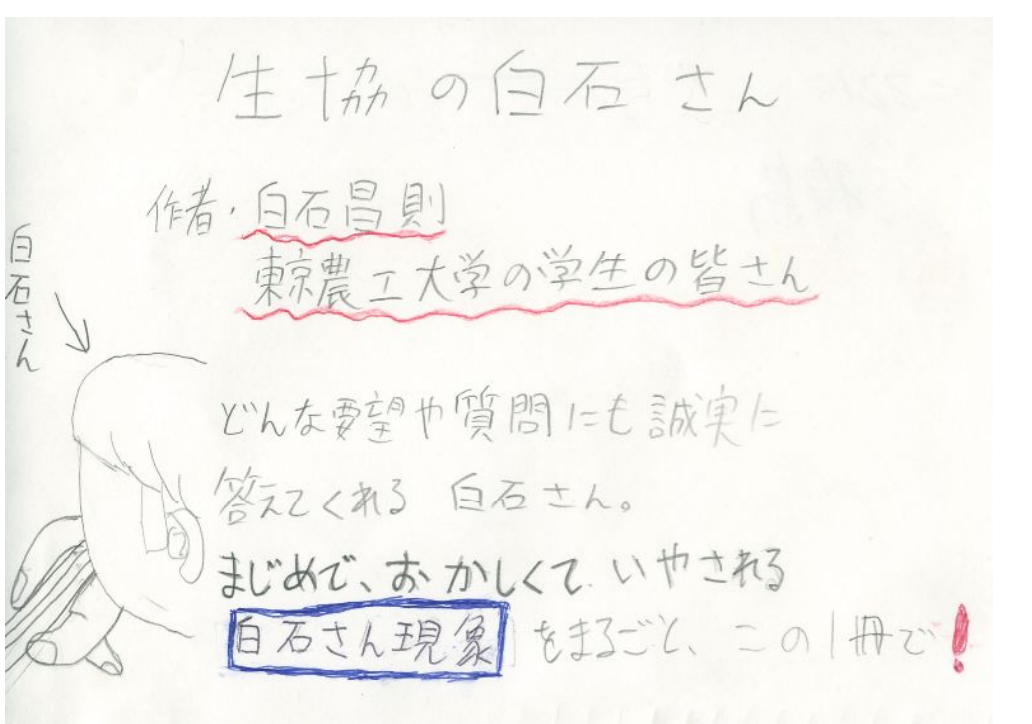 生協の白石さん
作者・白石昌則
東京農工大学の学生の皆さん
白石さん
どんな要望や質問にも誠実に
答えてくれる 白石さん。
まじめで、おかしくて いやされる
白石さん現象をまるごと、この1冊で!